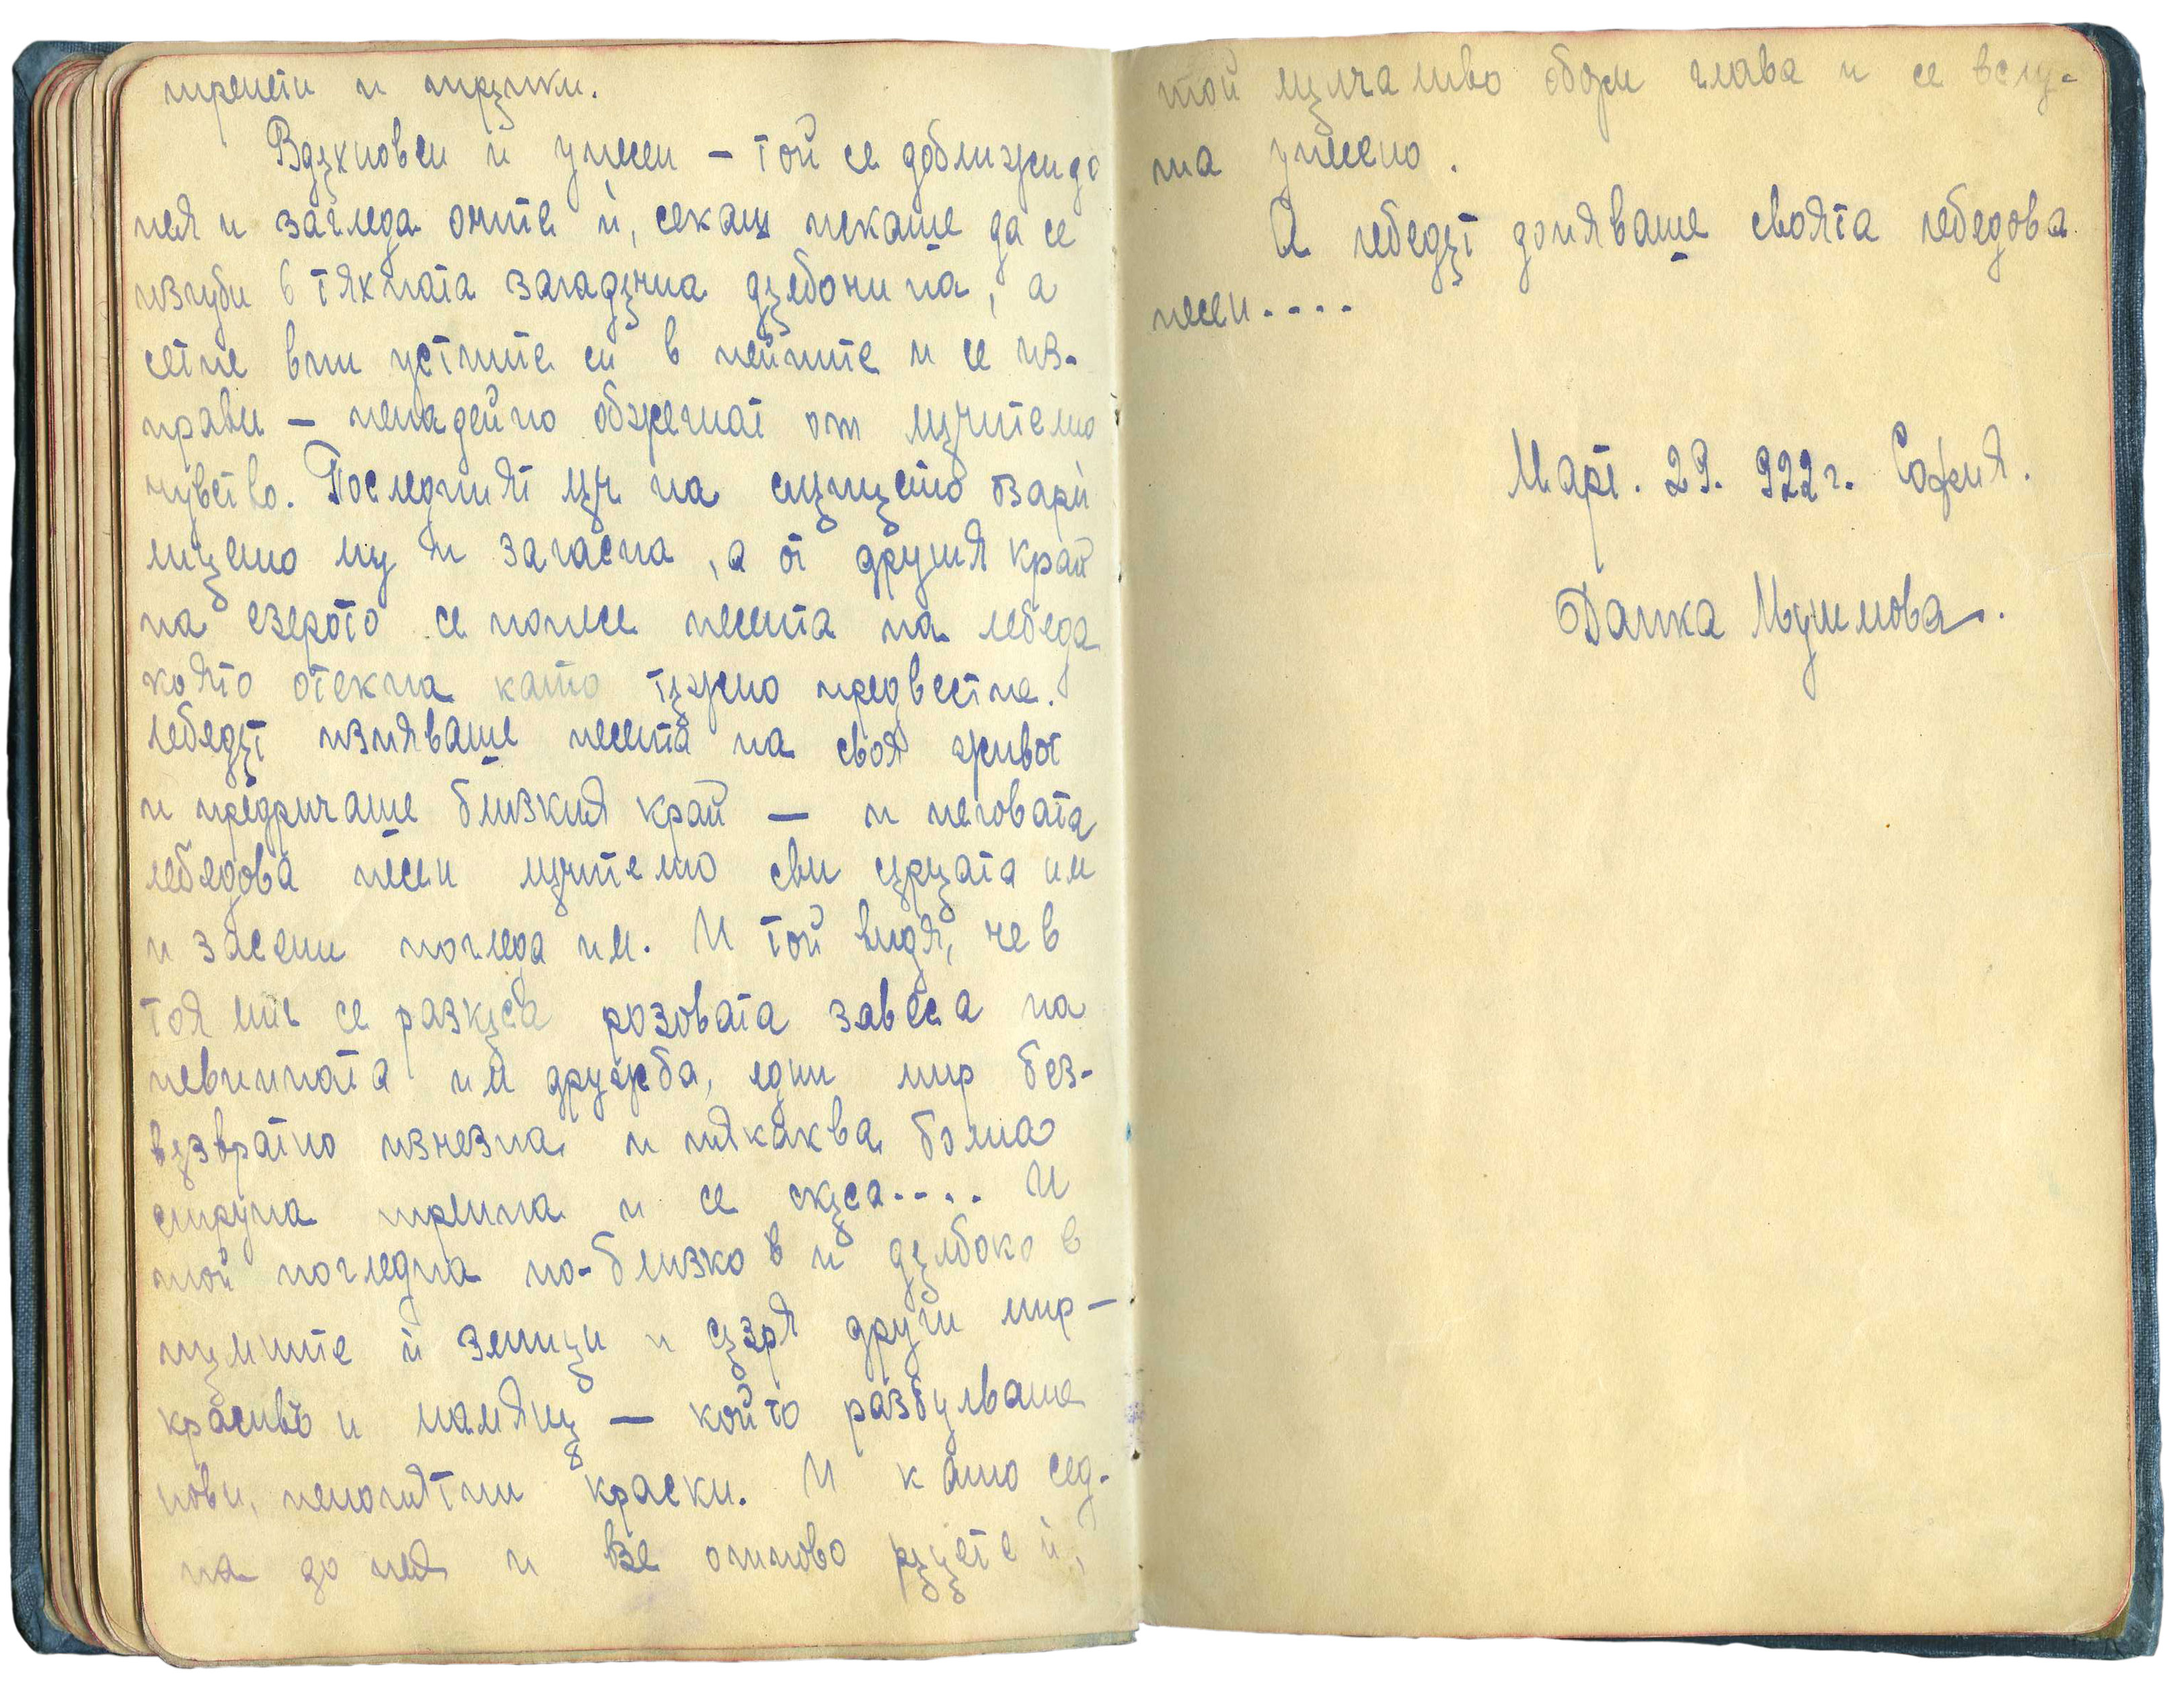 трепети и тръпки.
Вдъхновен и унесен – той се доближи до
нея и загледа очите ѝ, сякаш искаше да се
изгуби в тяхната загадъчна дълбочина, а
сетне впи устните си в нейните и се из-
прави – ненадейно обхванат от мъчително
чувство. Последният лъч на слънцето озари
лицето му и загасна, а от другия край
на езерото се понесе песента на лебеда
която отекна като тъжно предвестие.
Лебедът изпяваше песента на своя живот
и предричаше близкия край — и неговата
лебедова песен мъчително сви сърцата им
и засени погледа им. И той видя, че в
тоя миг се разкъса розовата завеса на
невинната им дружба, един мир без-
възвратно изчезна и някаква болна
струна трепна и се скъса.... И
той погледна по-близко и дълбоко в
тъмните ѝ зеници и съзря други мир –
красивъ и мамящ — който разбулваше
нови, непонятни краски. И като сед-
на до нея и взе отново ръцете ѝ,
той мълчаливо обори глава и се вслу-
ша унесено.
А лебедът допяваше своята лебедова
песен....
Март. 29. 922 г. София.
Данка Мушмова.